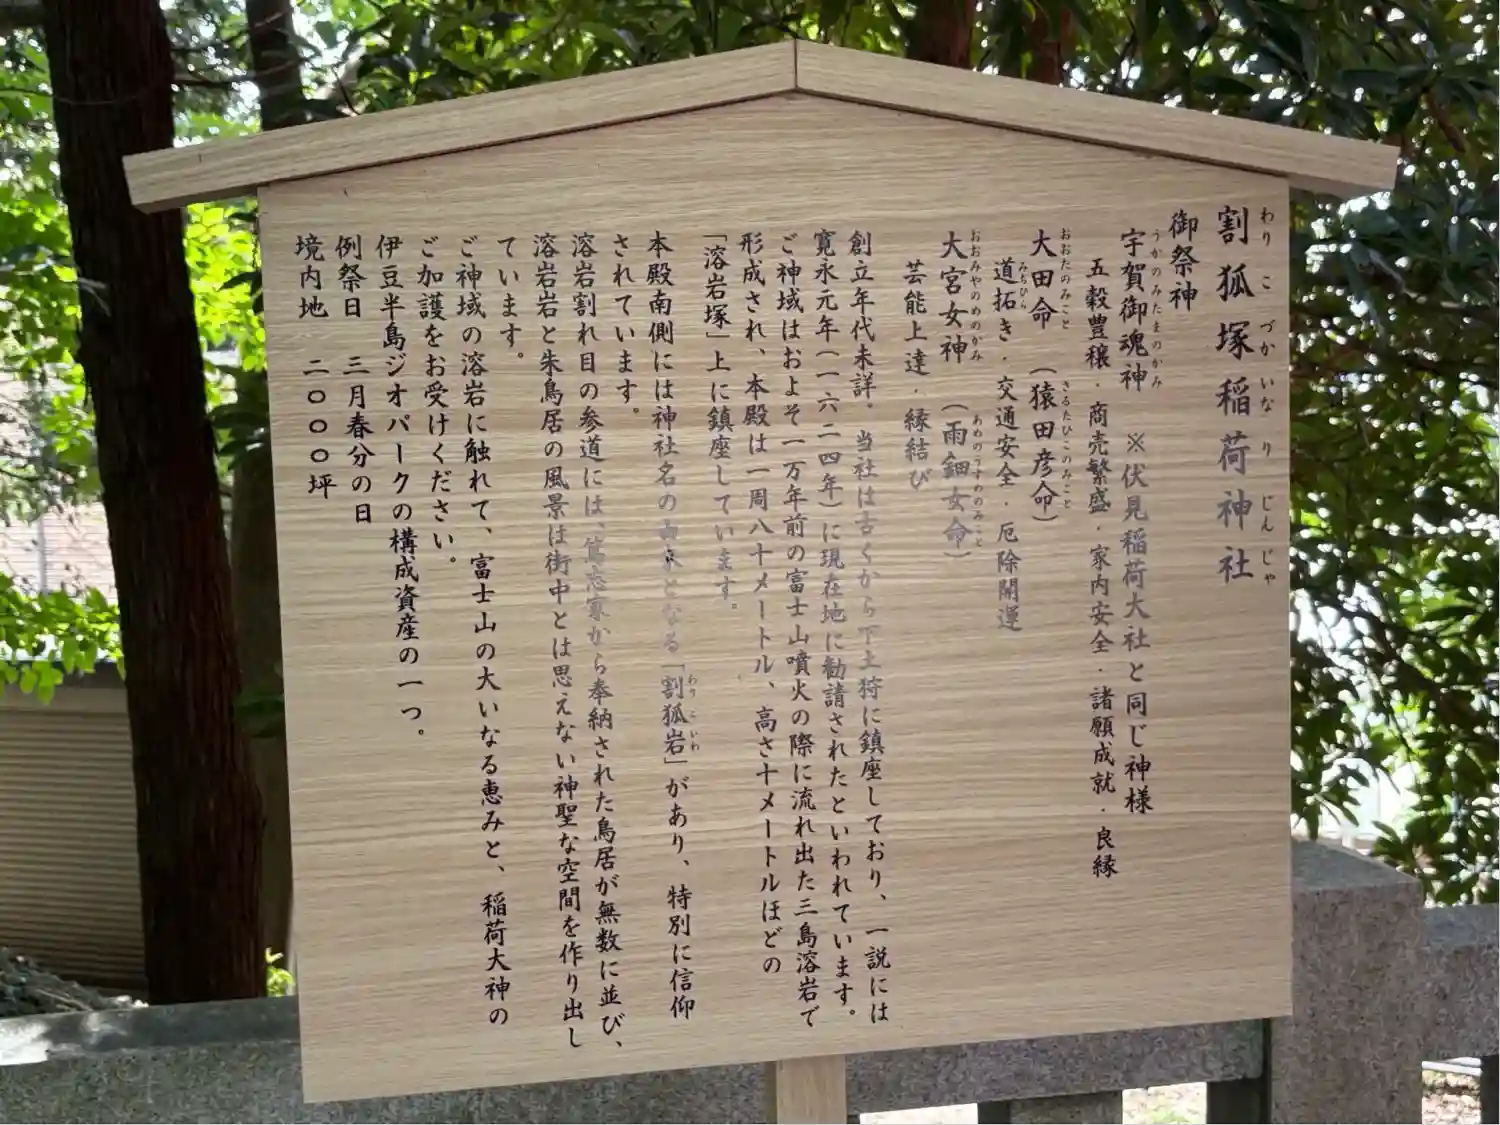 割狐塚稲荷神社
わりこづかいなりじんじゃ
御祭神
宇賀御魂神 ※伏見稲荷大社と同じ神様
うかのみたまのかみ
五穀豊穣・商売繁盛・家内安全・諸願成就・良縁
大田命(猿田彦命)
おおたのみこと さるたひこのみこと
道拓き・交通安全・厄除開運
みちひら
大宮女神(雨鈿女命)
おおみやのめのかみ あめのうずめのみこと
芸能上達・縁結び
創立年代未詳。当社は古くから下土狩に鎮座しており、一説には
寛永元年(一六二四年)に現在地に勧請されたといわれています。
ご神域はおよそ一万年前の富士山噴火の際に流れ出た三島溶岩で
形成され、本殿は一周八十メートル、高さ十メートルほどの
「溶岩塚」上に鎮座しています。
本殿南側には神社名の由来となる「割狐岩」があり、特別に信仰
わりこいわ
されています。
溶岩割れ目の参道には、篤志家から奉納された鳥居が無数に並び、
溶岩岩と朱鳥居の風景は街中とは思えない神聖な空間を作り出し
ています。
ご神域の溶岩に触れて、富士山の大いなる恵みと、稲荷大神の
ご加護をお受けください。
伊豆半島ジオパークの構成資産の一つ。
例祭日 三月春分の日
境内地 二〇〇〇坪